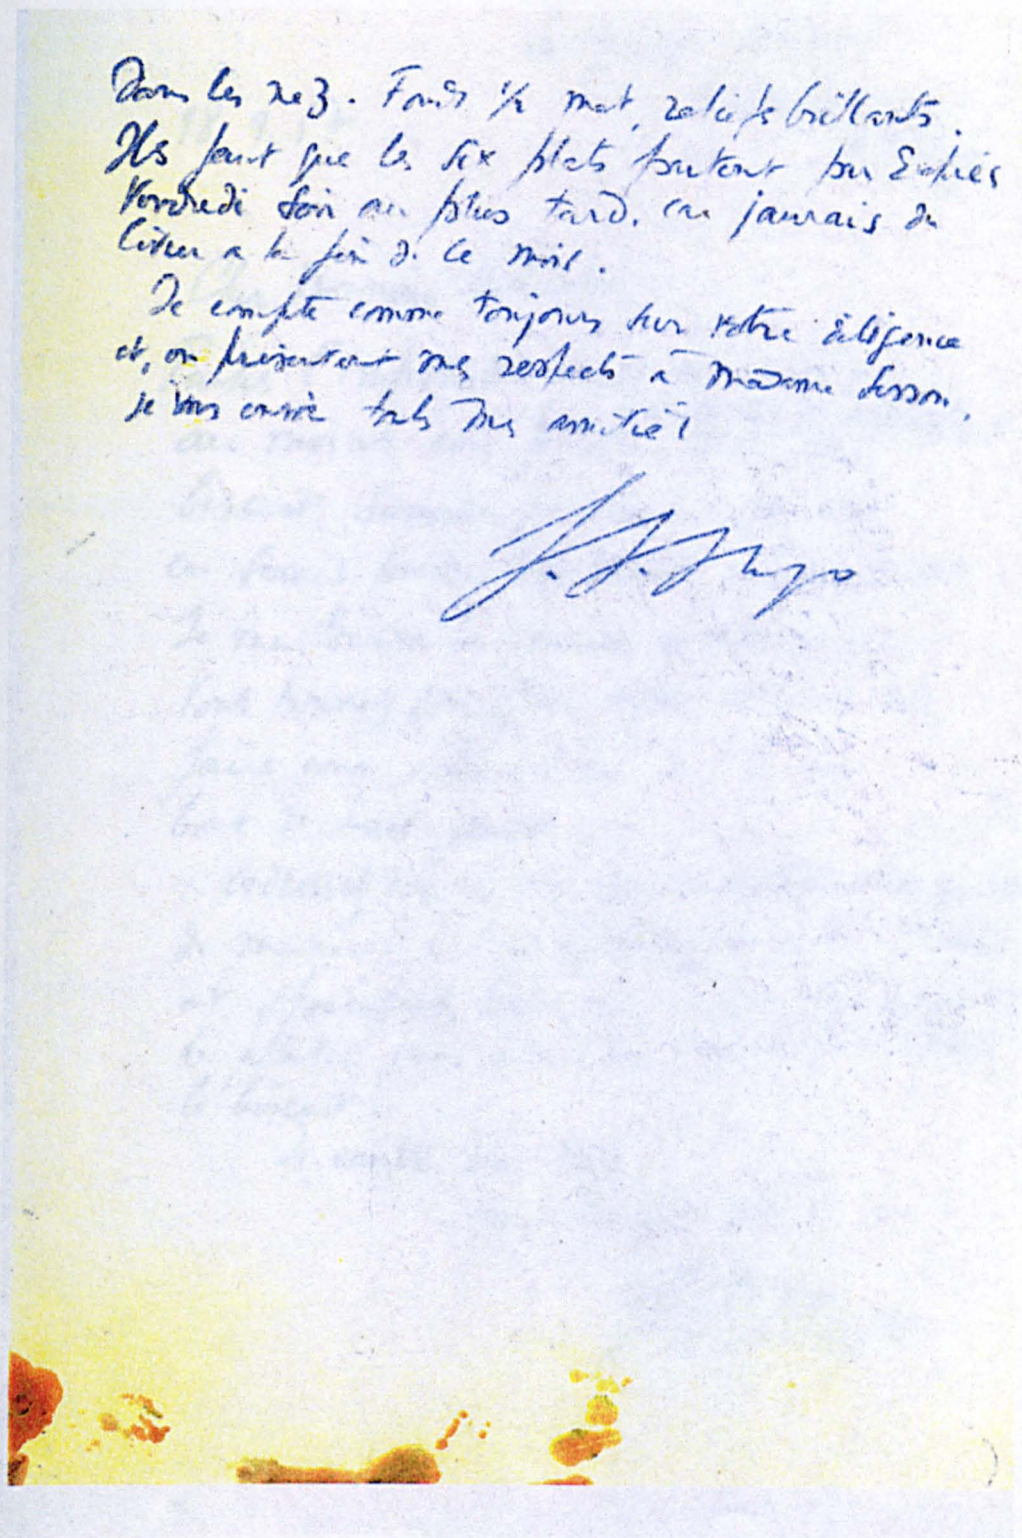 Dans les nez. Fonds ½ mat, reliefs brillants.
Ils faut que les six plats partent par Exprés
Vendredi soir au plus tard. car jaurais du
livrer a la fin de ce mois.
Je compte comme toujours sur votre diligence
et, en présentant mes respects à Madame
je vous envoie touts mes amitiés
Hugo